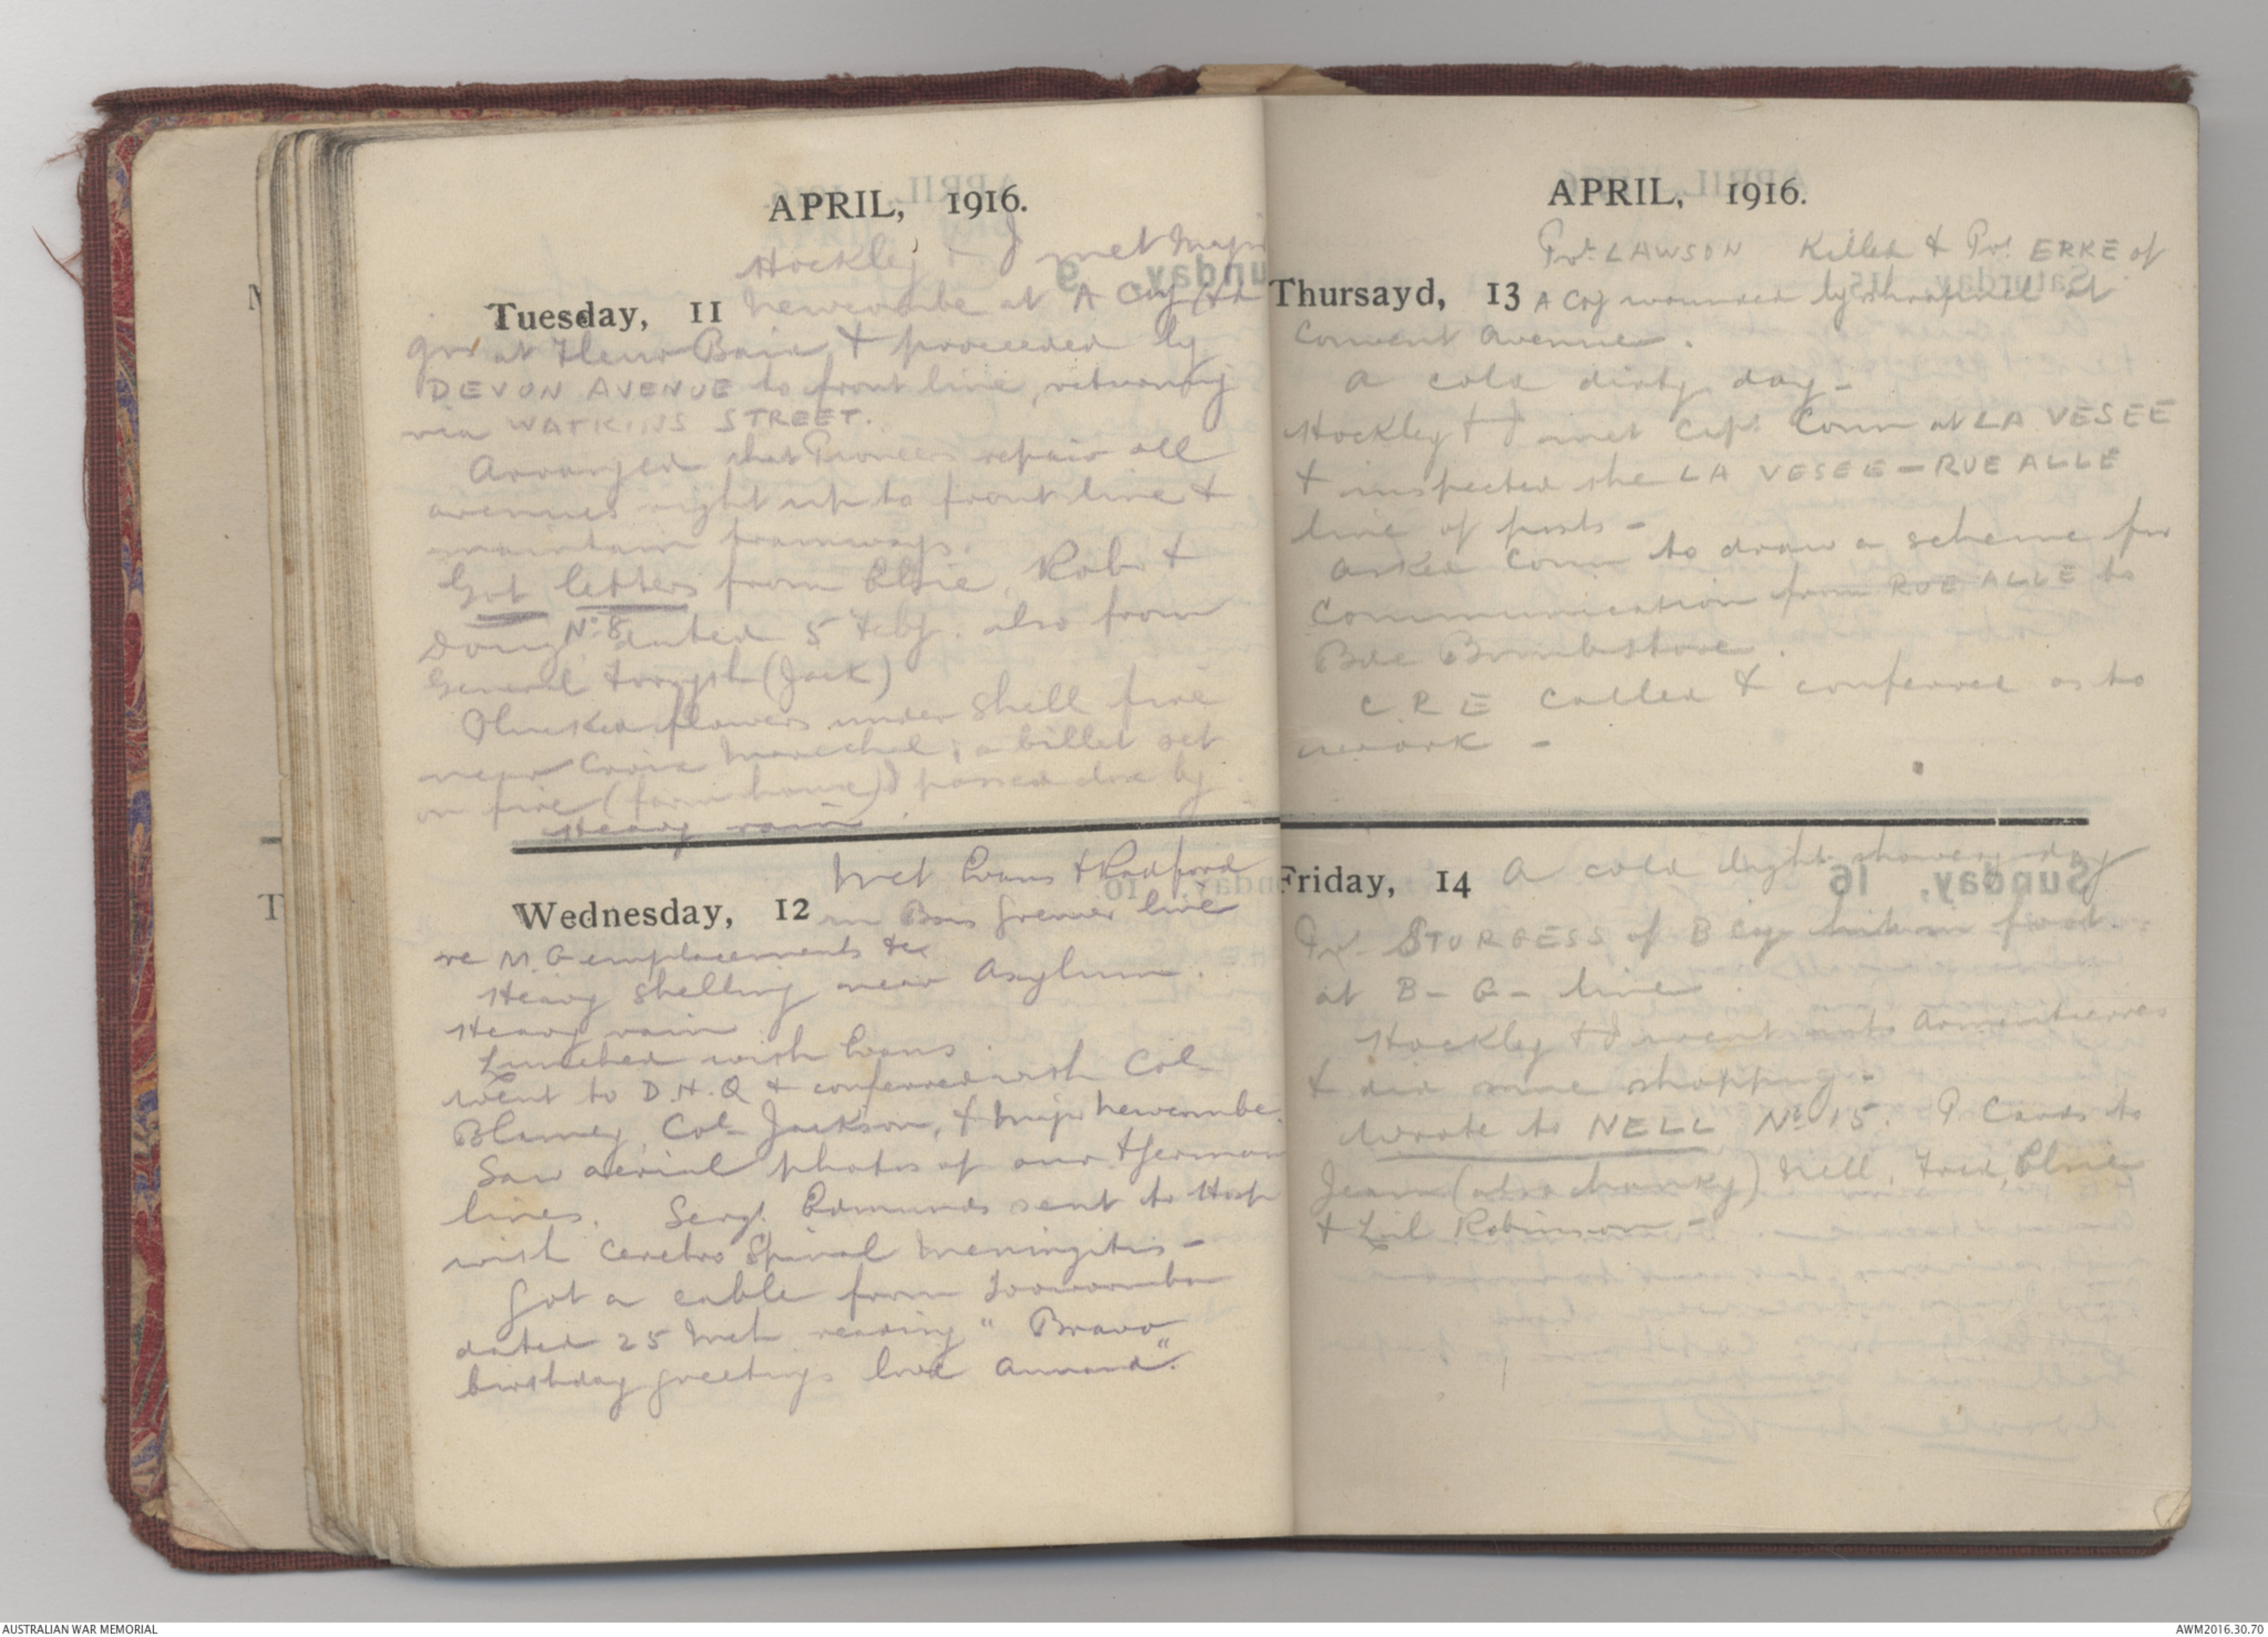 APRIL, 1916.
Hockley & I met Major
Tuesday, 11 Newcombe at A Coy Hd
qrs at Fleur Baix, & proceeded by
DEVON AVENUE to front line, returning
via WATKINS STREET.
Arranged that Pioneers repair all
avenues right up to front line &
maintain tramways.
Got letters from Elsie, Rob &
Doug No. 8 dated 5 Feby. also from
General Forsyth (Jack)
Plucked flowers under shell fire
near Croix Marechal, a billet set
on fire (farm house) I passed close by
Heavy rain.
Met Evans & Radford
Wednesday, 12 in Bois Grenier line
re M.G emplacements &c
Heavy shelling near Asylum.
Heavy rain
Lunched with Evans.
Went to D.H.Q & conferred with Col
Blamey, Col Jackson, & Major Newcombe.
Saw aerial photos of our & German
lines. Sergt. Edmunds sent to Hosp
with Cerebro Spinal Meningitis -
Got a cable from Toowoomba
dated 25 Mch reading "Bravo
birthday greetings love Annand".
APRIL, 1916.
Pvt. LAWSON Killed & Pvt. ERKE of
Thursayd, 13 A Coy wounded by shrapnel at
Convent Avenue.
A cold dirty day -
Hockley & I met Capt. Conn at LA VESEE
& inspected the LA VESEE - RUE ALLE
line of posts -
Asked Conn to draw a scheme for
Communication from RUE ALLE to
Bde Bombstore.
C.R.E called & conferred as to
work -
Friday, 14 A cold showery day
Pvt. STURGESS of B Coy hit in foot.
at B - G - line.
Hockley & I went into Armentieres
& did some shopping -
Wrote to NELL No. 15. P. Cards to
Jean (also hanky) Nell, Fred, Elsie
& Lil Robinson -
AUSTRALIAN WAR MEMORIAL
AWM2016.30.70